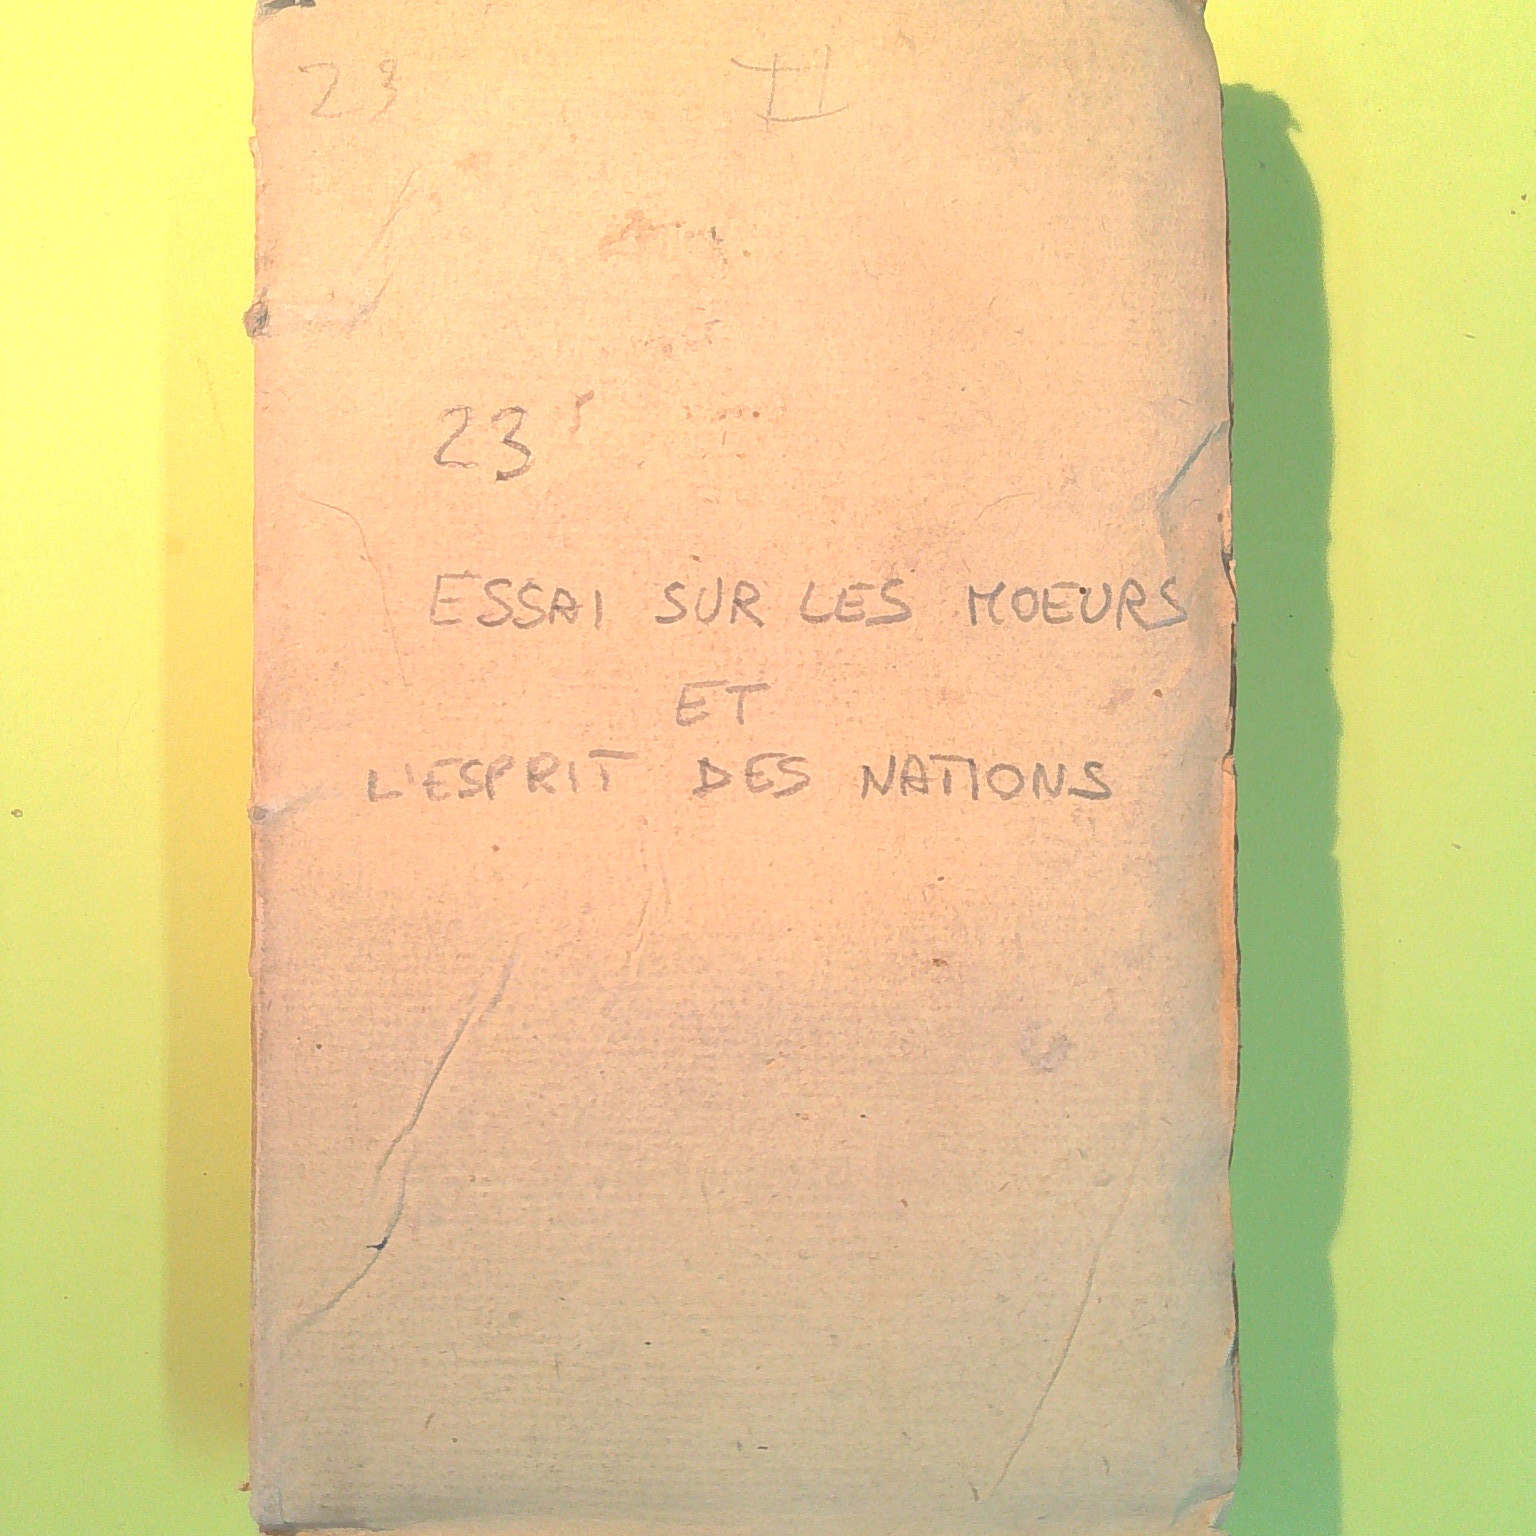 23 II
23
ESSAI SUR LES MOEURS
ET
L'ESPRIT DES NATIONS